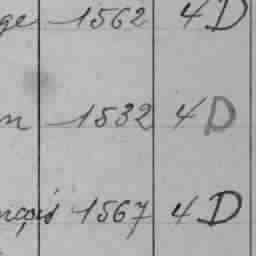 ge 1562 4 D
n 1532 4 D
nçois 1567 4 D